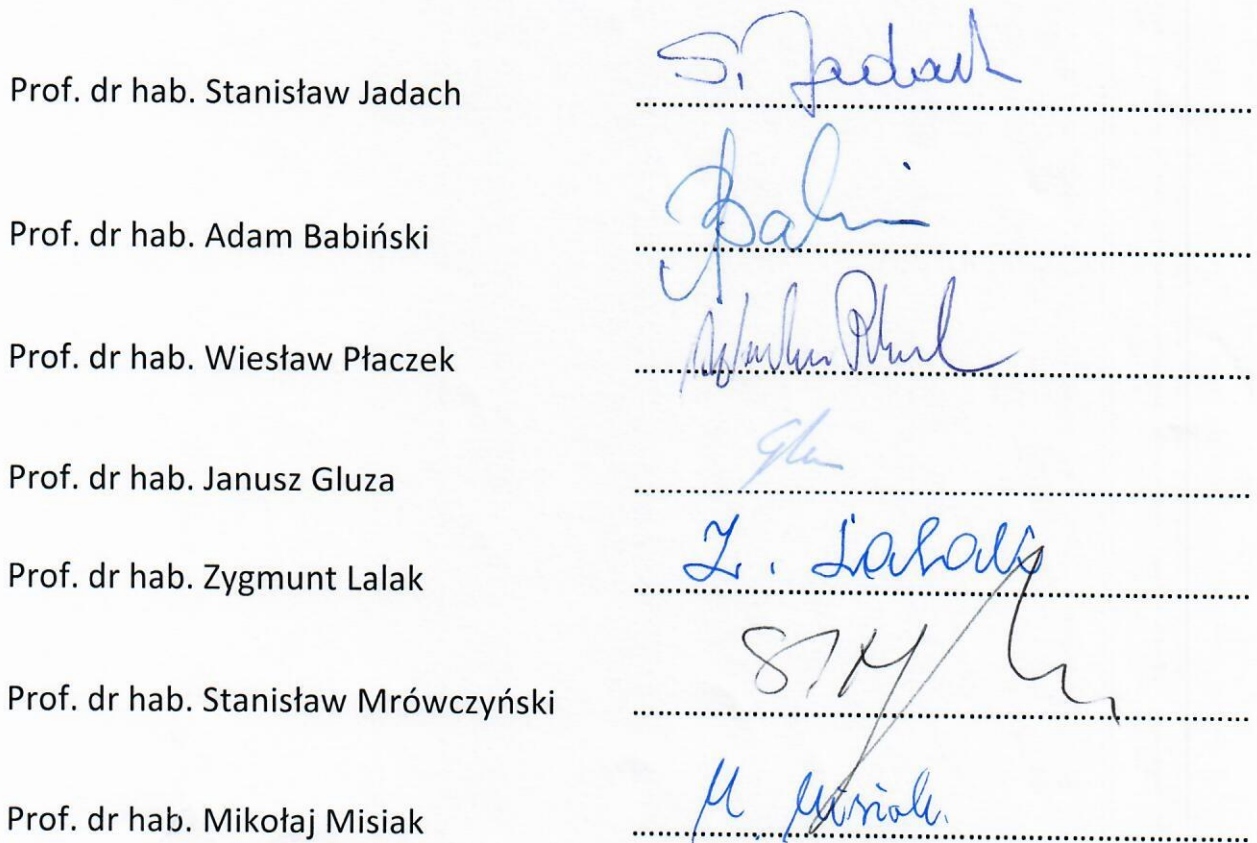 Prof. dr hab. Stanisław Jadach S. Jadach
Prof. dr hab. Adam Babiński
Prof. dr hab. Wiesław Płaczek
Prof. dr hab. Janusz Gluza
Prof. dr hab. Zygmunt Lalak Z. Lalak
Prof. dr hab. Stanisław Mrówczyński
Prof. dr hab. Mikołaj Misiak M. Misiak